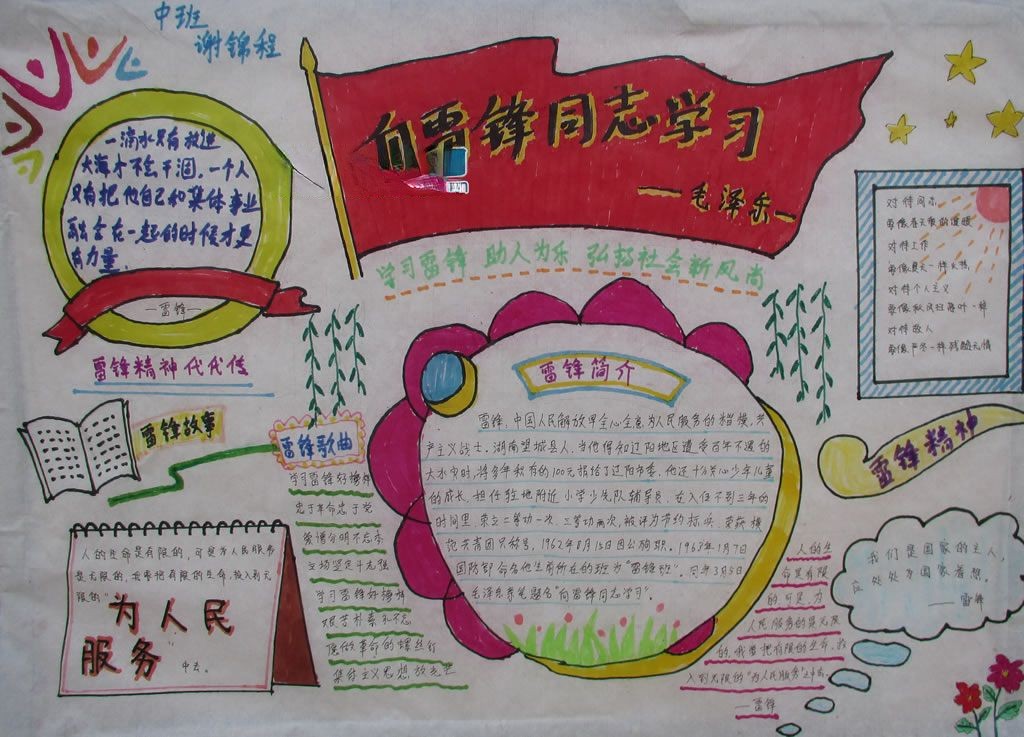 中班
谢锦程
向雷锋同志学习
——毛泽东—
学习雷锋 助人为乐 弘扬社会新风尚
一滴水只有放进
大海才不会干涸，一个人
只有把他自己和集体事业
融合在一起的时候才更
有力量。
—雷锋—
雷锋精神代代传
雷锋故事
雷锋歌曲
学习雷锋好榜样
忠于革命忠于党
爱憎分明不忘本
立场坚定斗志强
学习雷锋好榜样
艰苦朴素永不忘
愿做革命的螺丝钉
集体主义思想放光芒
人的生命是有限的，可是为人民服务
是无限的，我要把有限的生命，投入到无
限的"
为人民
服务"
中去。
雷锋简介
雷锋，中国人民解放军全心全意为人民服务的楷模，共
产主义战士。湖南望城县人，当他得知辽阳地区遭受百年不遇的
大水灾时，将多年积存的100元捐给了辽阳市委，他还十分关心少年儿童
的成长，担任驻地附近小学少先队辅导员，在入伍不到三年的
时间里，荣立二等功一次，三等功两次，被评为节约标兵，荣获模
范共青团员称号，1962年8月15日因公殉职。1963年1月7日
国防部命名他生前所在的班为"雷锋班"。同年3月5日
毛泽东亲笔题名"向雷锋同志学习"。
对待同志
要像春天般的温暖
对待工作
要像夏天一样火热
对待个人主义
要像秋风扫落叶一样
对待敌人
要像严冬一样残酷无情
雷锋精神
我们是国家的主人，
应处处为国家着想。
——雷锋
人的生
命是有限
的可是，为
人民服务的是无限
的，我要把有限的生命，投
入到无限的"为人民服务"之中去。
—雷锋